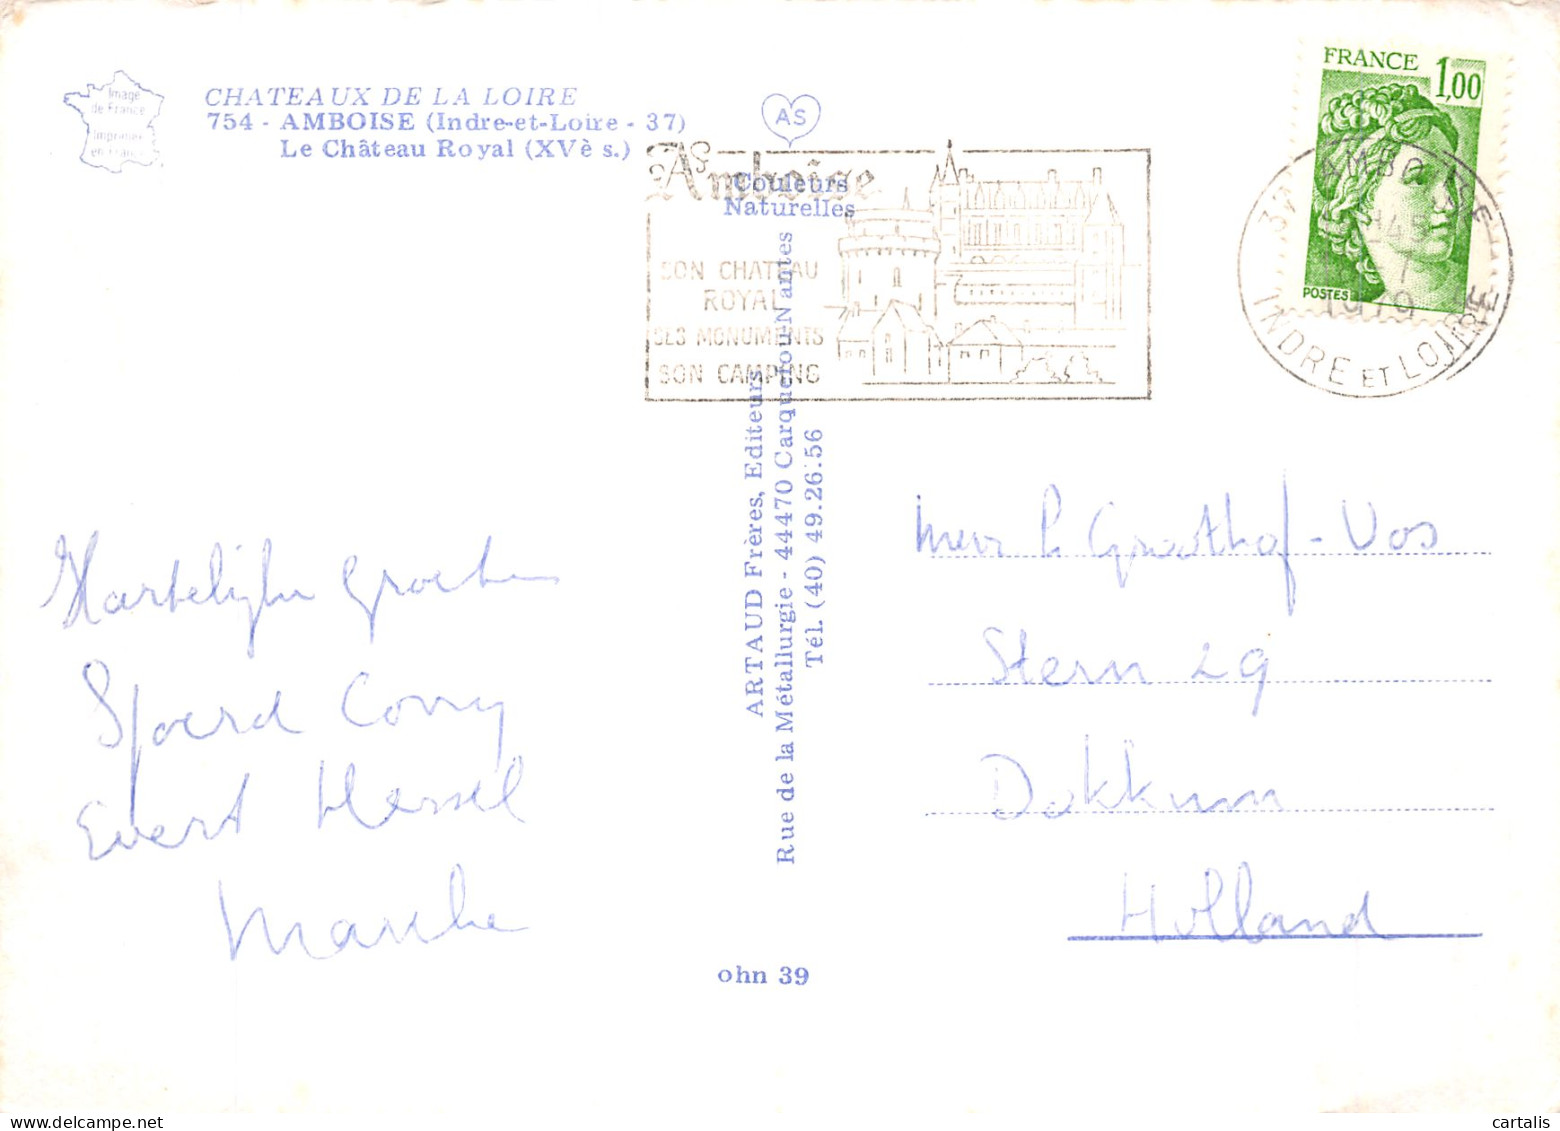 Image
de France
Imprimée
en France
CHATEAUX DE LA LOIRE
754 - AMBOISE (Indre-et-Loire - 37)
Le Château Royal (XVè s.)
AS
Couleurs
Naturelles
Amboise
SON CHATEAU
ROYAL
SES MONUMENTS
SON CAMPING
FRANCE 1,00
POSTES
37 AMBOISE
1979
INDRE ET LOIRE
ARTAUD Frères, Editeurs
Rue de la Métallurgie - 44470 Carquefou Nantes
Tél. (40) 49.26.56
Hartelijke Groeten
Sjoerd Conny
Evert Hessel
ohn 39
Grosthof - Vos
Stern 29
Dokkum
Holland
cartalis